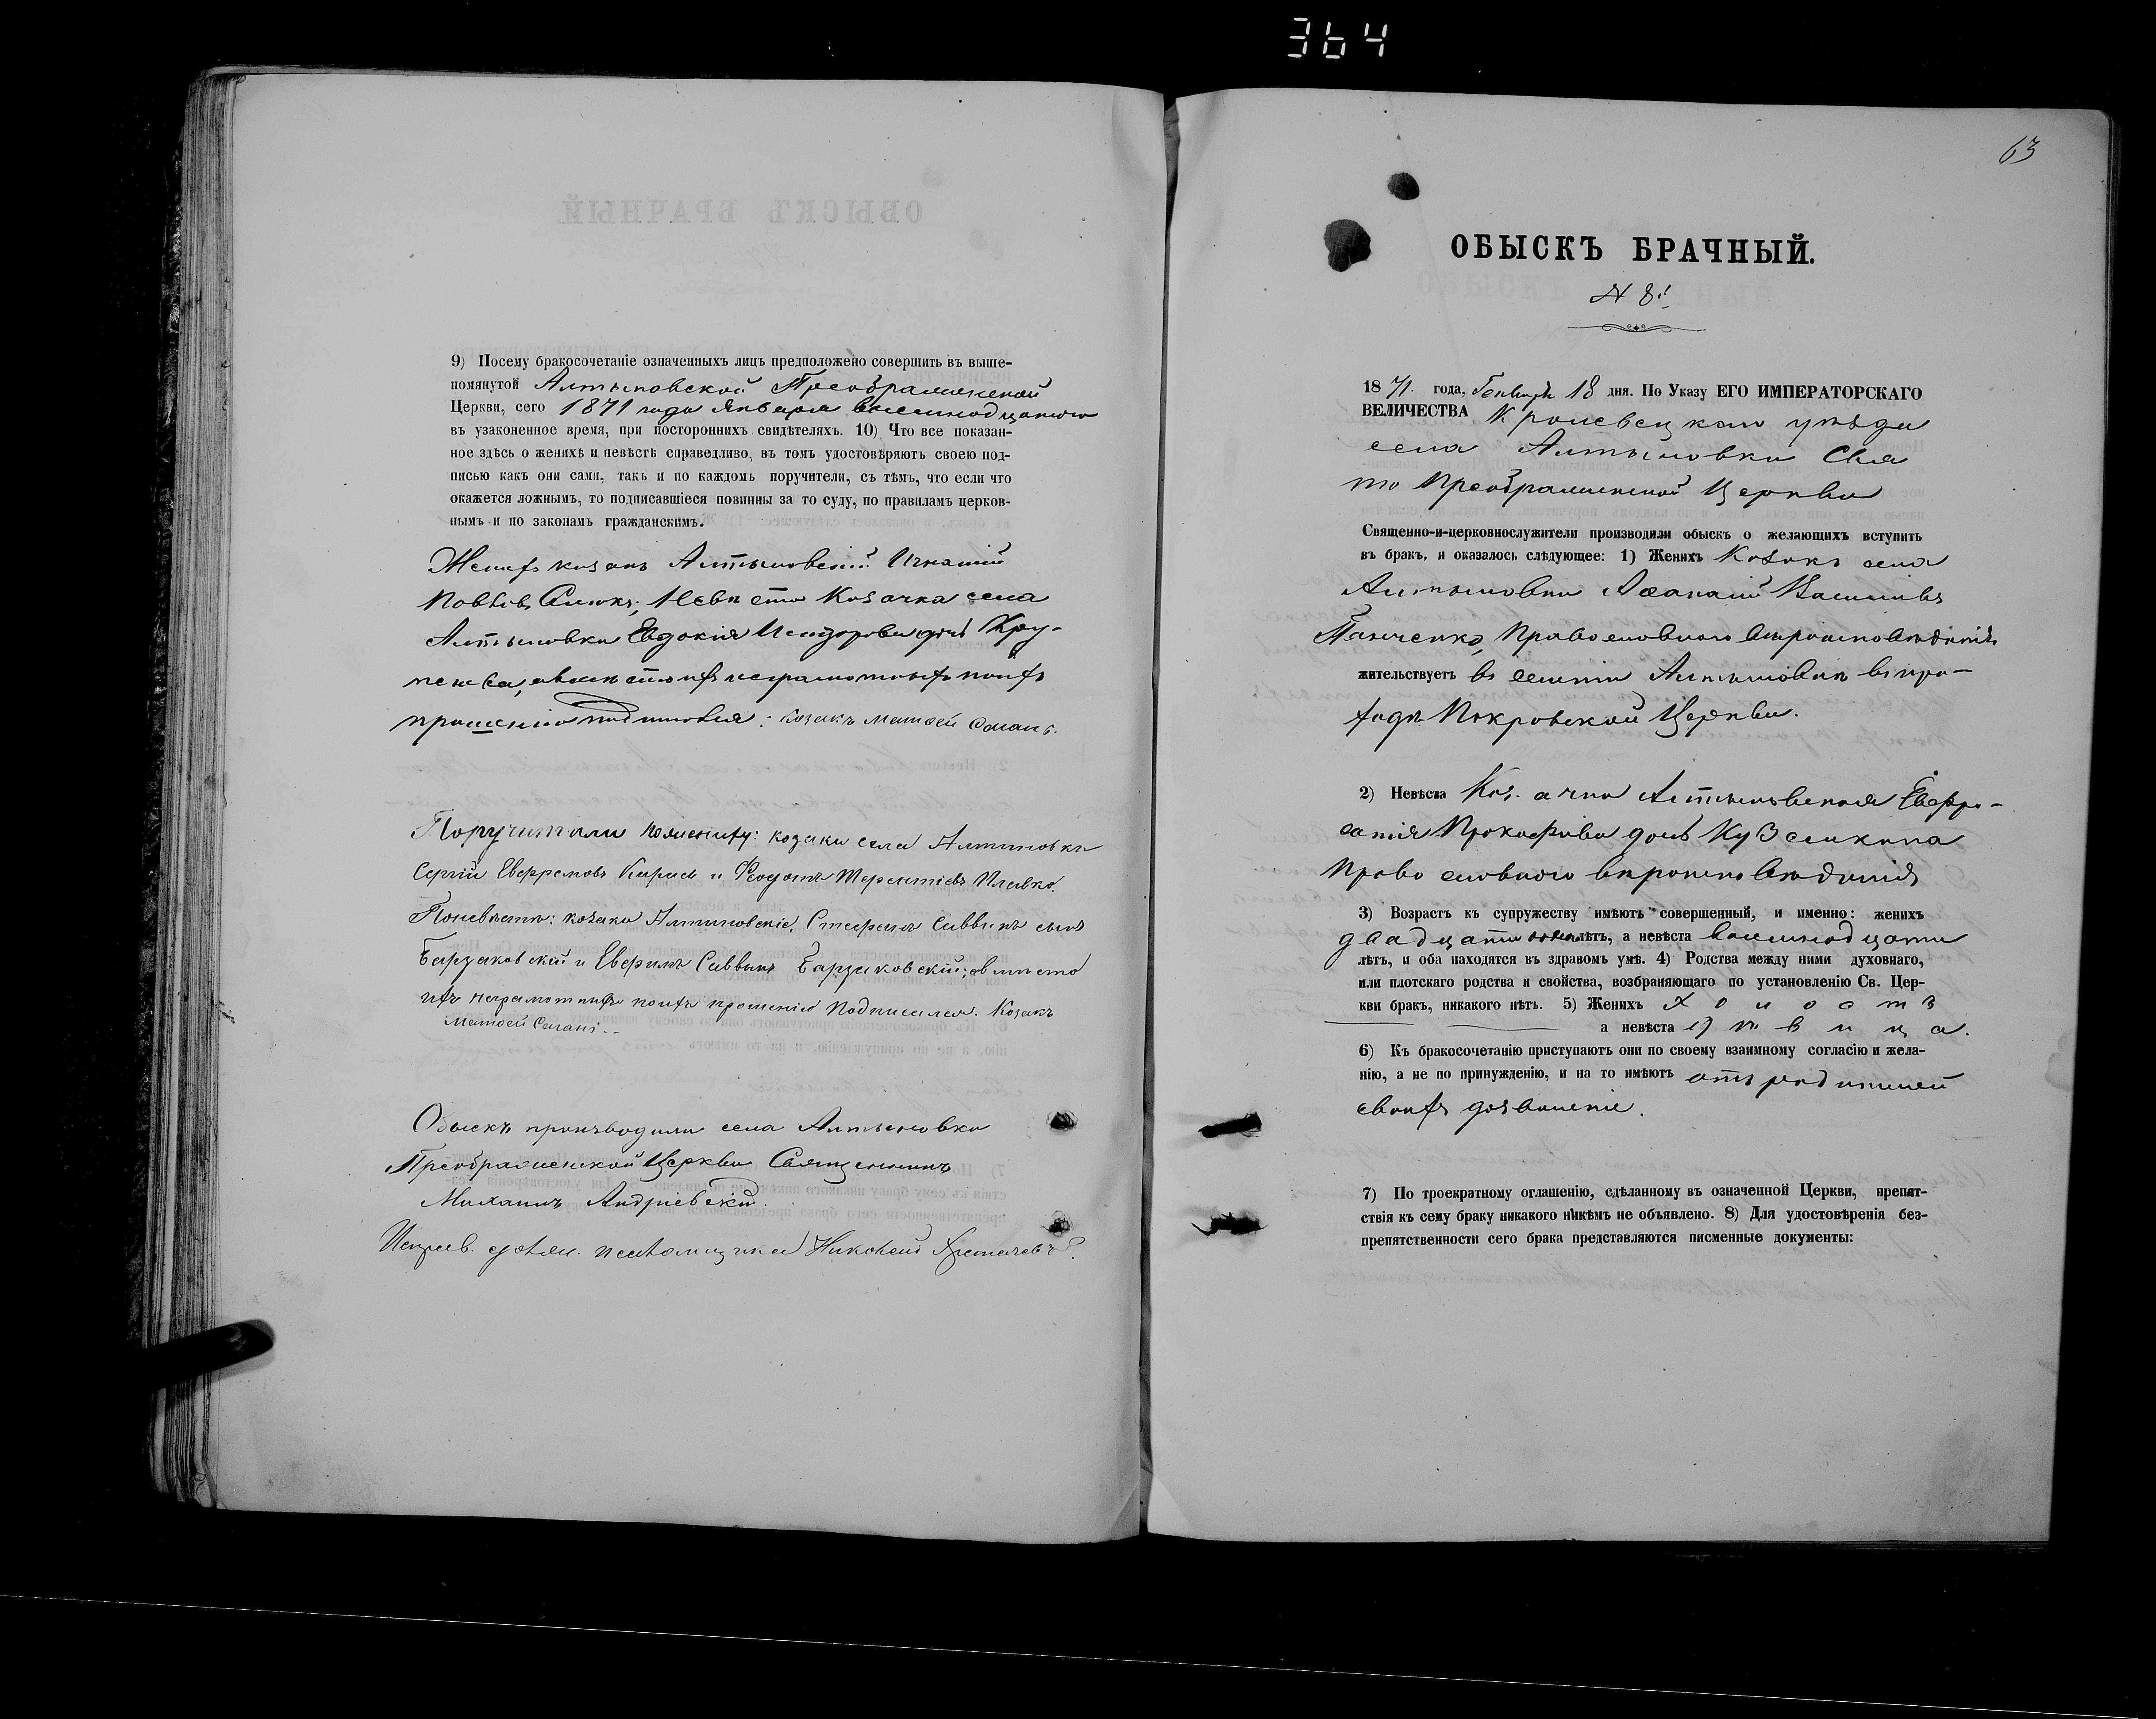 364
9) Посему бракосочетаніе означенныхъ лицъ предположено совершить въ выше-
помянутой Алтыновской Преображенской
Церкви, сего 1871 года Января восемнодцатого
въ узаконенное время, при постороннихъ свидѣтеляхъ. 10) Что все показан-
ное здѣсь о женихѣ и невѣстѣ справедливо, въ томъ удостовѣряютъ своею под-
писью какъ они сами, такъ и по каждомъ поручители, съ тѣмъ, что если что
окажется ложнымъ, то подписавшіеся повинны за то суду, по правиламъ церков-
нымъ и по законамъ гражданскимъ.
Женихъ козакъ Алтыновскій Игнатій
Невѣста Козачка села
Алтыновки Евдокія дочь Кру-
неграмотныхъ поихъ
прошенію подписался: козакъ Матѳей
Поручители поженихѣ: козаки села Алтыновки
Сергій Евфремовъ и Ѳеодотъ Терентіевъ
Поневѣстѣ: козаки Алтиновскіе, Стефанъ Саввинъ сынъ
Барзаковскій и Саввинъ Барзаковскій; авмѣсто
ихъ неграмотныхъ поихъ прошенію подписался. Козакъ
Матѳей
Обыскъ производили села Алтыновки
Преображенской Церкви Священникъ
Михаилъ Андріевскій.
Николай
63
ОБЫСКЪ БРАЧНЫЙ.
№ 8й
1871. года, Генваря 18 дня. По Указу ЕГО ИМПЕРАТОРСКАГО
ВЕЛИЧЕСТВА Кролевецкаго уѣзда
села Алтыновки Свя
то Преображенской Церкви
Священно-и-церковнослужители производили обыскъ о желающихъ вступить
въ бракъ, и оказалось слѣдующее: 1) Женихъ Козакъ села
Алтыновки Василіевъ
Панченко, Православного вѣроисповѣданія
жительствуетъ въ селеніи Алтыновкѣ въ при-
ходѣ Покровской Церкви.
2) Невѣста Козачка Алтыновская Евфро-
синія Прокофіева дочь
Православного вѣроисповѣданія
3) Возрастъ къ супружеству имѣютъ совершенный, и именно: женихъ
двадцати лѣтъ, а невѣста восемнодцати
лѣтъ, и оба находятся въ здравомъ умѣ. 4) Родства между ними духовнаго,
или плотскаго родства и свойства, возбраняющаго по установленію Св. Цер-
кви бракъ, никакого нѣтъ. 5) Женихъ холостъ
а невѣста дѣвица.
6) Къ бракосочетанію приступаютъ они по своему взаимному согласію и жела-
нію, а не по принужденію, и на то имѣютъ отъ родителей
своихъ дозволеніе.
7) По троекратному оглашенію, сдѣланному въ означенной Церкви, препят-
ствія къ сему браку никакого никѣмъ не объявлено. 8) Для удостовѣренія без-
препятственности сего брака представляются писменные документы: